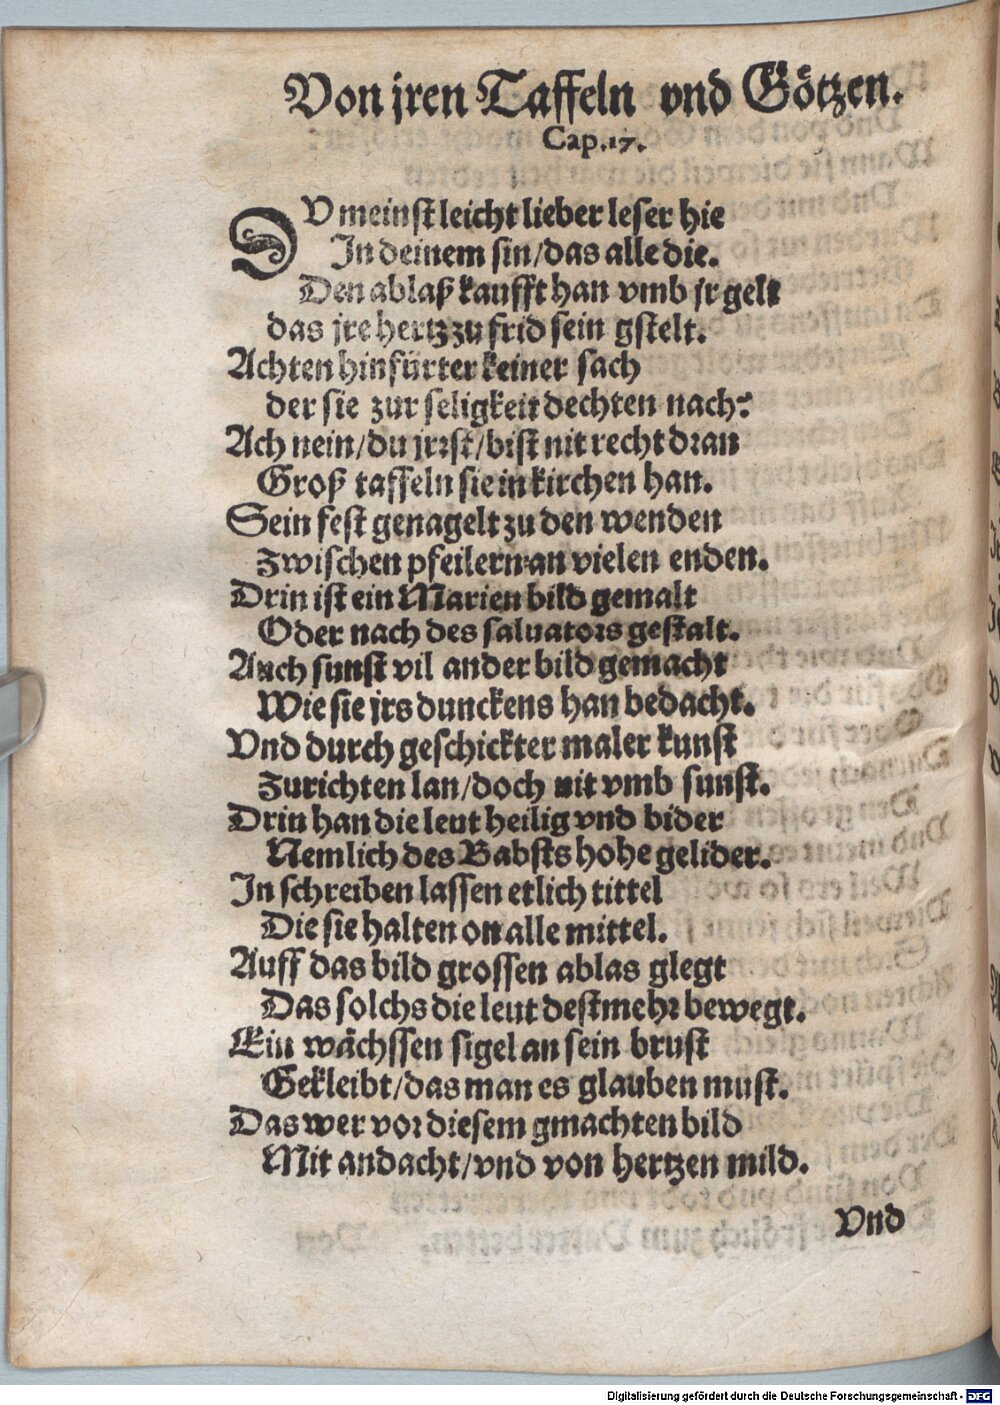 Von jren Taffeln vnd Götzen.
Cap.17.
DV meinst leicht lieber leser hie
In deinem sin/das alle die.
Den ablaß kaufft han vmb jr gelt
das jre hertz zu frid sein gstelt.
Achten hinfürter keiner sach
der sie zur seligkeit dechten nach?
Ach nein/du jrrst/bist nit recht dran
Groß taffeln sie in kirchen han.
Sein fest genagelt zu den wenden
zwischen pfeilern an vielen enden.
Drin ist ein Marien bild gemalt
Oder nach des saluators gestalt.
Auch sunst vil ander bild gemacht
Wie sie jrs dunckens han bedacht.
Vnd durch geschickter maler kunst
zurichten lan/doch nit vmb sunst.
Drin han die leut heilig vnd bider
Nemlich des Babsts hohe gelider.
In schreiben lassen etlich tittel
Die sie halten on alle mittel.
Auff das bild grossen ablas glegt
Das solchs die leut destmehr bewegt.
Ein wächssen sigel an sein brust
Gekleibt/das man es glauben must.
Das wer vor diesem gmachten bild
Mit andacht/vnd von hertzen mild.
Vnd
Digitalisierung gefördert durch die Deutsche Forschungsgemeinschaft - DFG